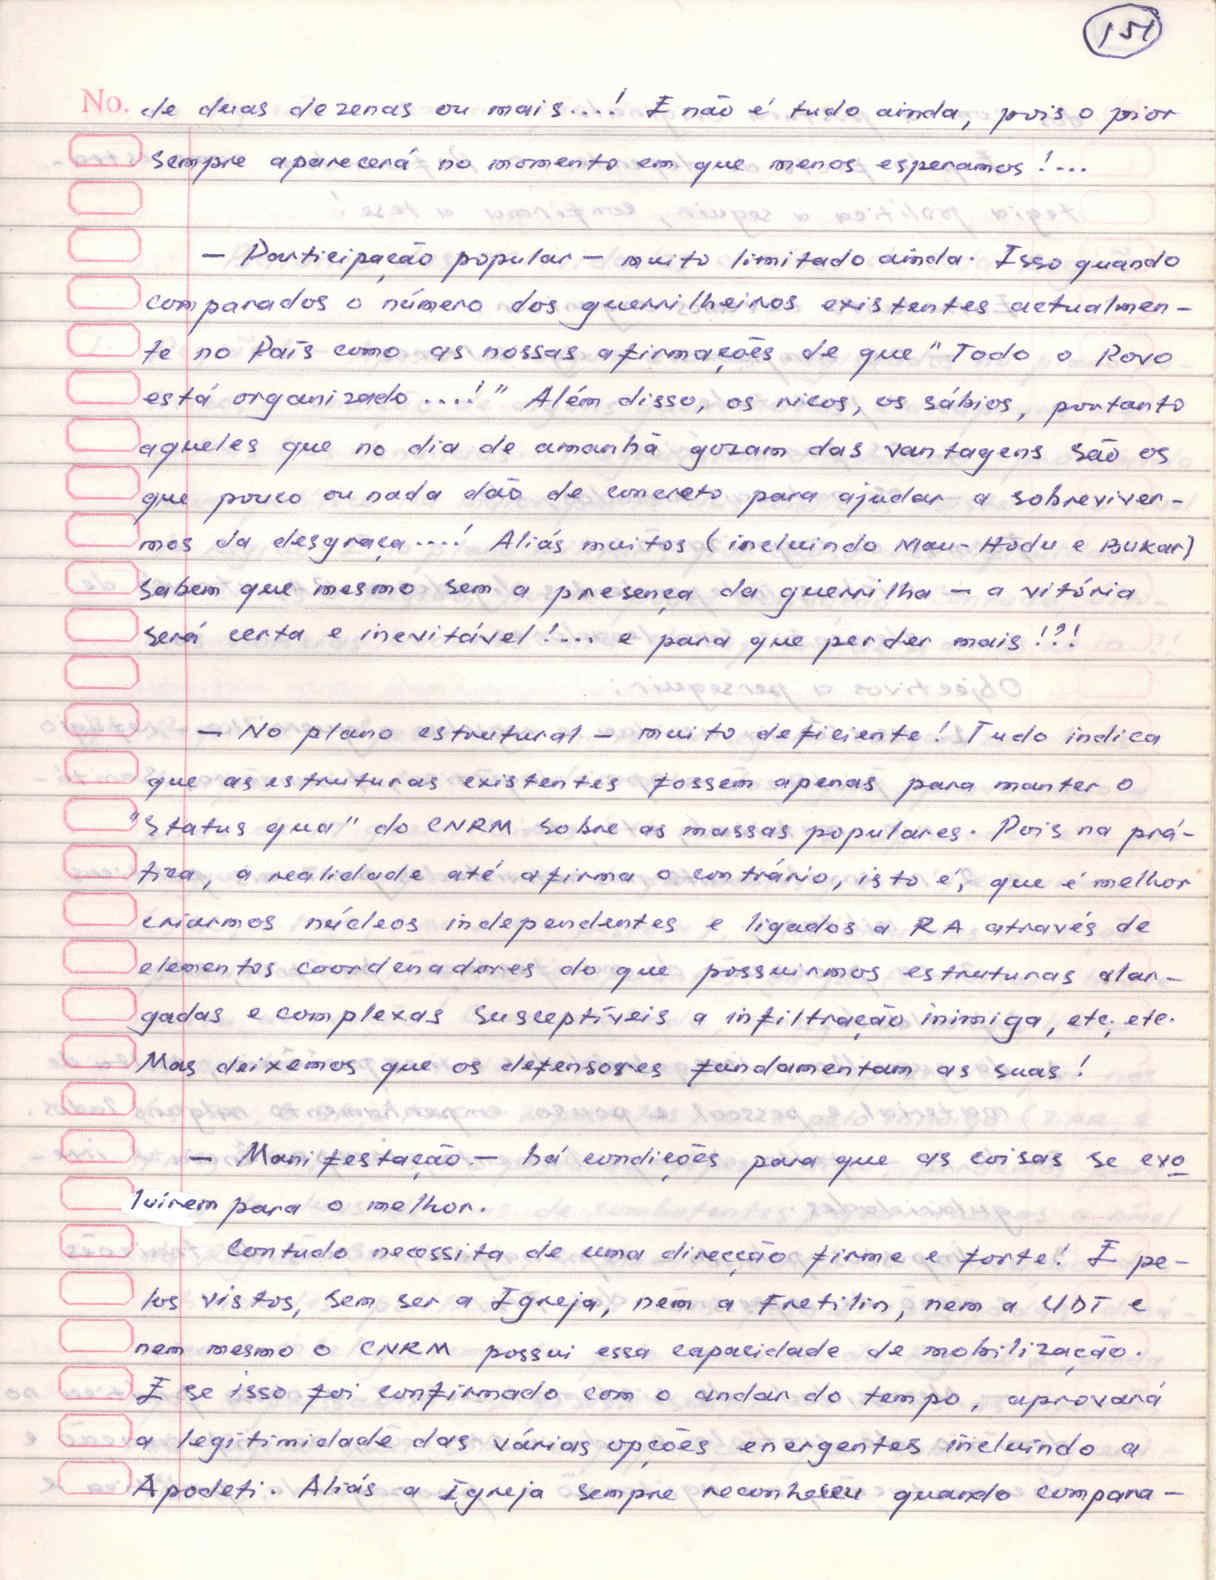 151
No. de duas dezenas ou mais....! E não é tudo ainda, pois o pior
sempre aparecerá no momento em que menos esperamos!...
— Participação popular — muito limitado ainda. Isso quando
comparados o número dos guerrilheiros existentes actualmen-
te no País como as nossas afirmações de que "Todo o Povo
está organizado....!" Além disso, os ricos, os sábios, portanto
aqueles que no dia de amanhã gozam das vantagens são os
que pouco ou nada dão de concreto para ajudar a sobreviver-
mos da desgraça....! Aliás muitos (incluindo Mau-Hodu e Bukar)
sabem que mesmo sem a presença da guerrilha — a vitória
será certa e inevitável!... e para que perder mais!?!
— No plano estrutural — muito deficiente! Tudo indica
que as estruturas existentes fossem apenas para manter o
"Status qua" do CNRM sobre as massas populares. Pois na prá-
tica, a realidade até afirma o contrário, isto é, que é melhor
criarmos núcleos independentes e ligados a RA através de
elementos coordenadores do que possuirmos estruturas alar-
gadas e complexas susceptíveis a infiltração inimiga, etc; etc.
Mas deixemos que os defensores fundamentam as suas!
— Manifestação — há condições para que as coisas se evo
luírem para o melhor.
Contudo necessita de uma direcção firme e forte! E pe-
los vistos, sem ser a Igreja, nem a Fretilin, nem a UDT e
nem mesmo o CNRM possui essa capacidade de mobilização.
E se isso foi confirmado com o andar do tempo, aprovará
a legitimidade das várias opções energentes incluíndo a
Apodeti. Aliás a Igreja sempre reconheceu quando compara-